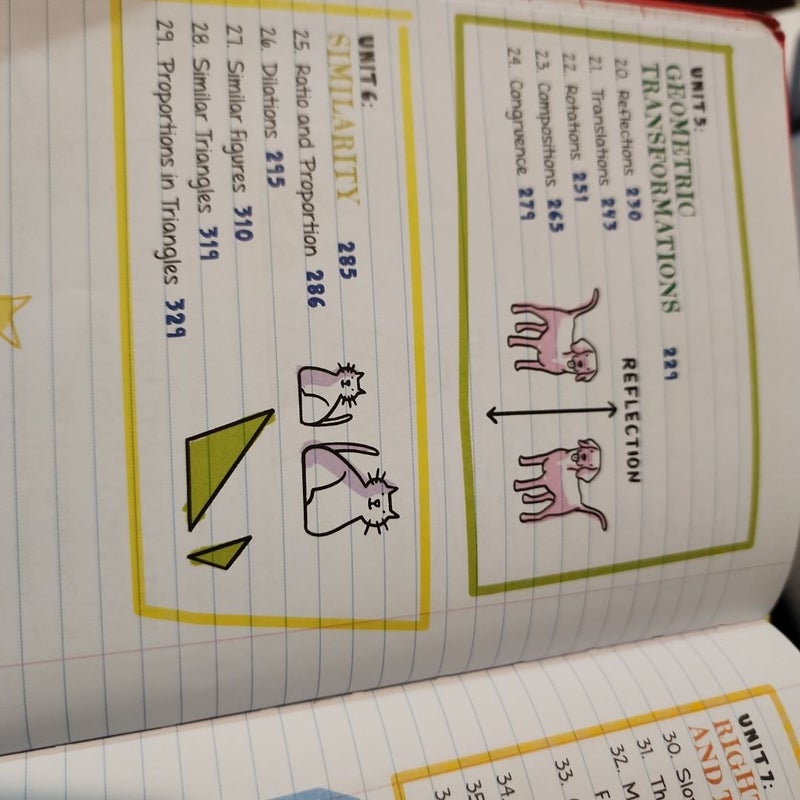 UNIT 5:
GEOMETRIC
TRANSFORMATIONS 229
20. Reflections 230
21. Translations 243
22. Rotations 251
23. Compositions 265
24. Congruence 279
REFLECTION
UNIT 6:
SIMILARITY 285
25. Ratio and Proportion 286
26. Dilations 295
27. Similar Figures 310
28. Similar Triangles 319
29. Proportions in Triangles 329
UNIT 7:
AND
30.
31.
32.
33.
34.